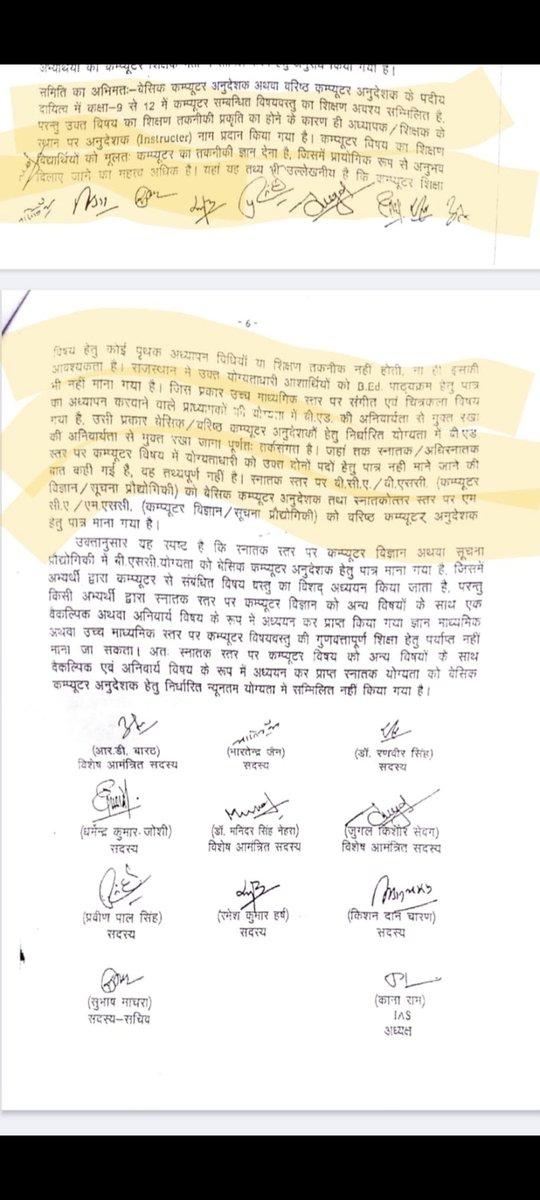 अभ्यर्थियों को कम्प्यूटर शिक्षक किया गया है।
समिति का अभिमतः-बेसिक कम्प्यूटर अनुदेशक अथवा वरिष्ठ कम्प्यूटर अनुदेशक के पदीय
दायित्व में कक्षा-9 से 12 में कम्प्यूटर सम्बन्धित विषयवस्तु का शिक्षण अवश्य सम्मिलित है,
परन्तु उक्त विषय का शिक्षण तकनीकी प्रकृति का होने के कारण ही अध्यापक/शिक्षक के
स्थान पर अनुदेशक (Instructer) नाम प्रदान किया गया है। कम्प्यूटर विषय का शिक्षण
विद्यार्थियों को मूलतः कम्प्यूटर का तकनीकी ज्ञान देना है, जिसमें प्रायोगिक रूप से अनुभव
दिलाए जाने का महत्व अधिक है। यहां यह तथ्य भी उल्लेखनीय है कि कम्प्यूटर शिक्षा
-6-
विषय हेतु कोई पृथक अध्यापन विधियों या शिक्षण तकनीक नहीं होती, ना ही इसकी
आवश्यकता है। राजस्थान में उक्त योग्यताधारी आशार्थियों को B.Ed. पाठ्यक्रम हेतु पात्र
भी नहीं माना गया है। जिस प्रकार उच्च माध्यमिक स्तर पर संगीत एवं चित्रकला विषय
का अध्यापन करवाने वाले प्राध्यापकों की योग्यता में बी.एड. की अनिवार्यता से मुक्त रखा
गया है, उसी प्रकार बेसिक/वरिष्ठ कम्प्यूटर अनुदेशकों हेतु निर्धारित योग्यता में बी.एड
की अनिवार्यता से मुक्त रखा जाना पूर्णतः तर्कसंगत है। जहां तक स्नातक/अधिस्नातक
स्तर पर कम्प्यूटर विषय में योग्यताधारी को उक्त दोनों पदों हेतु पात्र नहीं माने जाने की
बात कही गई है, वह तथ्यपूर्ण नहीं है। स्नातक स्तर पर बी.सी.ए./बी.एससी. (कम्प्यूटर
विज्ञान/सूचना प्रौद्योगिकी) को बेसिक कम्प्यूटर अनुदेशक तथा स्नातकोत्तर स्तर पर एम
सी.ए/एम.एससी. (कम्प्यूटर विज्ञान/सूचना प्रौद्योगिकी) को वरिष्ठ कम्प्यूटर अनुदेशक
हेतु पात्र माना गया है।
उक्तानुसार यह स्पष्ट है कि स्नातक स्तर पर कम्प्यूटर विज्ञान अथवा सूचना
प्रौद्योगिकी में बी.एससी.योग्यता को बेसिक कम्प्यूटर अनुदेशक हेतु पात्र माना गया है, जिसमें
अभ्यर्थी द्वारा कम्प्यूटर से संबंधित विषय वस्तु का विशद् अध्ययन किया जाता है, परन्तु
किसी अभ्यर्थी द्वारा स्नातक स्तर पर कम्प्यूटर विज्ञान को अन्य विषयों के साथ एक
वैकल्पिक अथवा अनियार्य विषय के रूप में अध्ययन कर प्राप्त किया गया ज्ञान माध्यमिक
अथवा उच्च माध्यमिक स्तर पर कम्प्यूटर विषयवस्तु की गुणवत्तापूर्ण शिक्षा हेतु पर्याप्त नहीं
माना जा सकता। अतः स्नातक स्तर पर कम्प्यूटर विषय को अन्य विषयों के साथ
वैकल्पिक एवं अनिवार्य विषय के रूप में अध्ययन कर प्राप्त स्नातक योग्यता को बेसिक
कम्प्यूटर अनुदेशक हेतु निर्धारित न्यूनतम योग्यता में सम्मिलित नहीं किया गया है।
(आर.डी. बारठ) (भारतेन्द्र जैन) (डॉ. रणवीर सिंह)
विशेष आमंत्रित सदस्य सदस्य सदस्य
(धर्मेन्द्र कुमार जोशी) (डॉ. मनिंदर सिंह नेहरा) (जुगल किशोर सेदग)
सदस्य विशेष आमंत्रित सदस्य विशेष आमंत्रित सदस्य
(प्रवीण पाल सिंह) (रमेश कुमार हर्ष) (किशन दान चारण)
सदस्य सदस्य सदस्य
(सुभाष माचरा) (काना राम)
सदस्य-सचिव IAS
अध्यक्ष